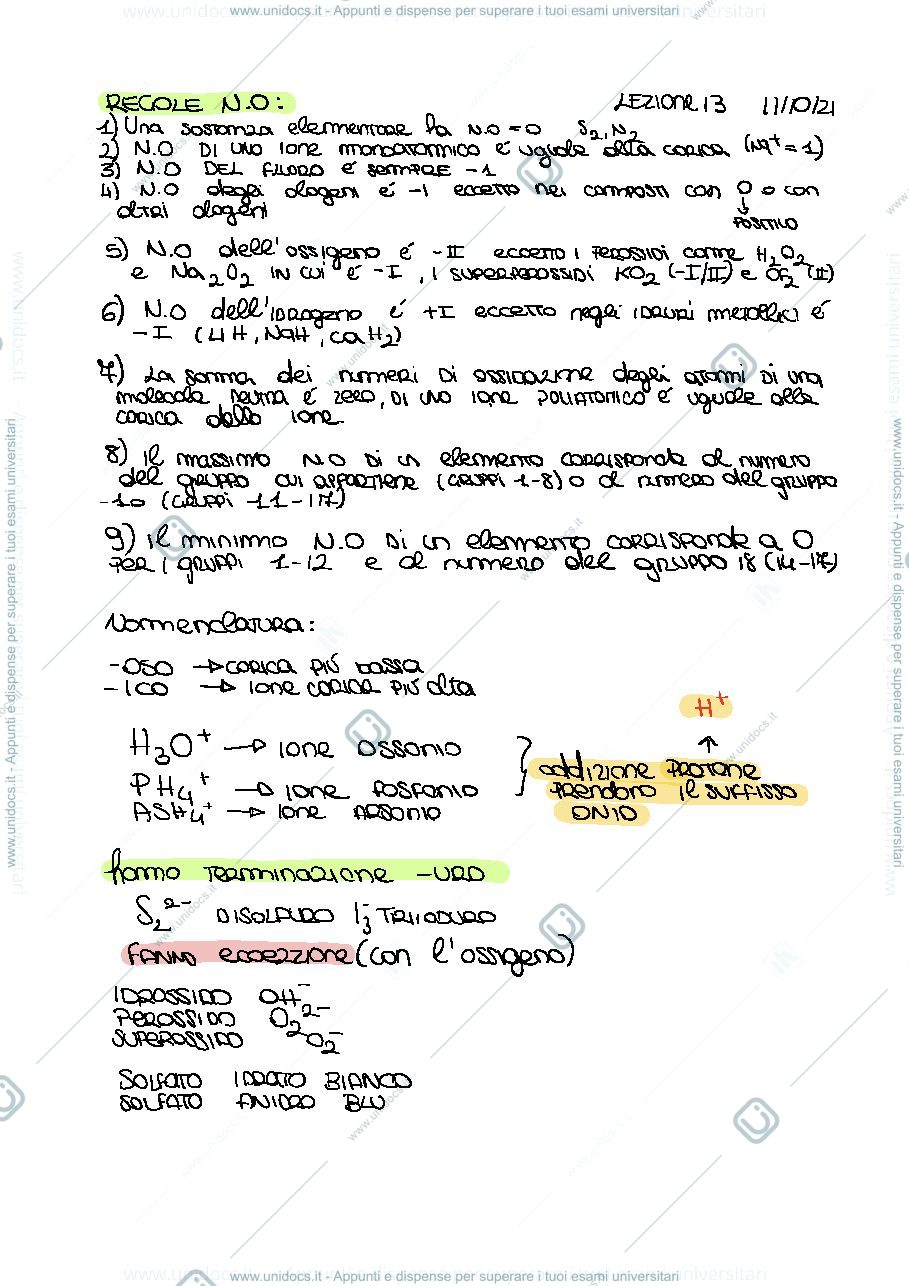 www.unidocs.it - Appunti e dispense per superare i tuoi esami universitari
REGOLE N.O: LEZIONE 13 11/10/21
1) Una sostanza elementare ha N.O = 0 S₂, N₂
2) N.O DI UNO IONE MONOATOMICO é uguale alla carica (Na⁺ = 1)
3) N.O DEL FLUORO é SEMPRE -1
4) N.O degli alogeni é -1 eccetto nei composti con O o con
altri alogeni
↓
POSITIVO
5) N.O dell'ossigeno é -II eccetto i perossidi come H₂O₂
e Na₂O₂ IN CUI é -I, i superperossidi KO₂ (-I/II) e OF₂ (II)
6) N.O dell'idrogeno é +I eccetto negli idruri metallici é
-I (LiH, NaH, CaH₂)
7) La somma dei numeri di ossidazione degli atomi di una
molecola neutra é zero, di uno ione poliatomico é uguale alla
carica dello ione.
8) il massimo N.O di un elemento corrisponde al numero
del gruppo cui appartiene (gruppi 1-8) o al numero del gruppo
-10 (gruppi 11-17)
9) il minimo N.O di un elemento corrisponde a 0
per i gruppi 1-12 e al numero del gruppo 18 (14-17)
Nomenclatura:
-OSO → carica più bassa
-ICO → ione carica più alta
H⁺
↑
H₃O⁺ → ione ossonio
PH₄⁺ → ione fosfonio
AsH₄⁺ → ione arsonio
addizione protone
prendono il suffisso
ONIO
hanno terminazione -URO
S₂²⁻ DISOLFURO I₃⁻ TRIIODURO
FANNO eccezzione (con l'ossigeno)
IDROSSIDO OH⁻
PEROSSIDO O₂²⁻
SUPEROSSIDO O₂⁻
SOLFATO IDRATO BIANCO
SOLFATO ANIDRO BLU
www.unidocs.it - Appunti e dispense per superare i tuoi esami universitari